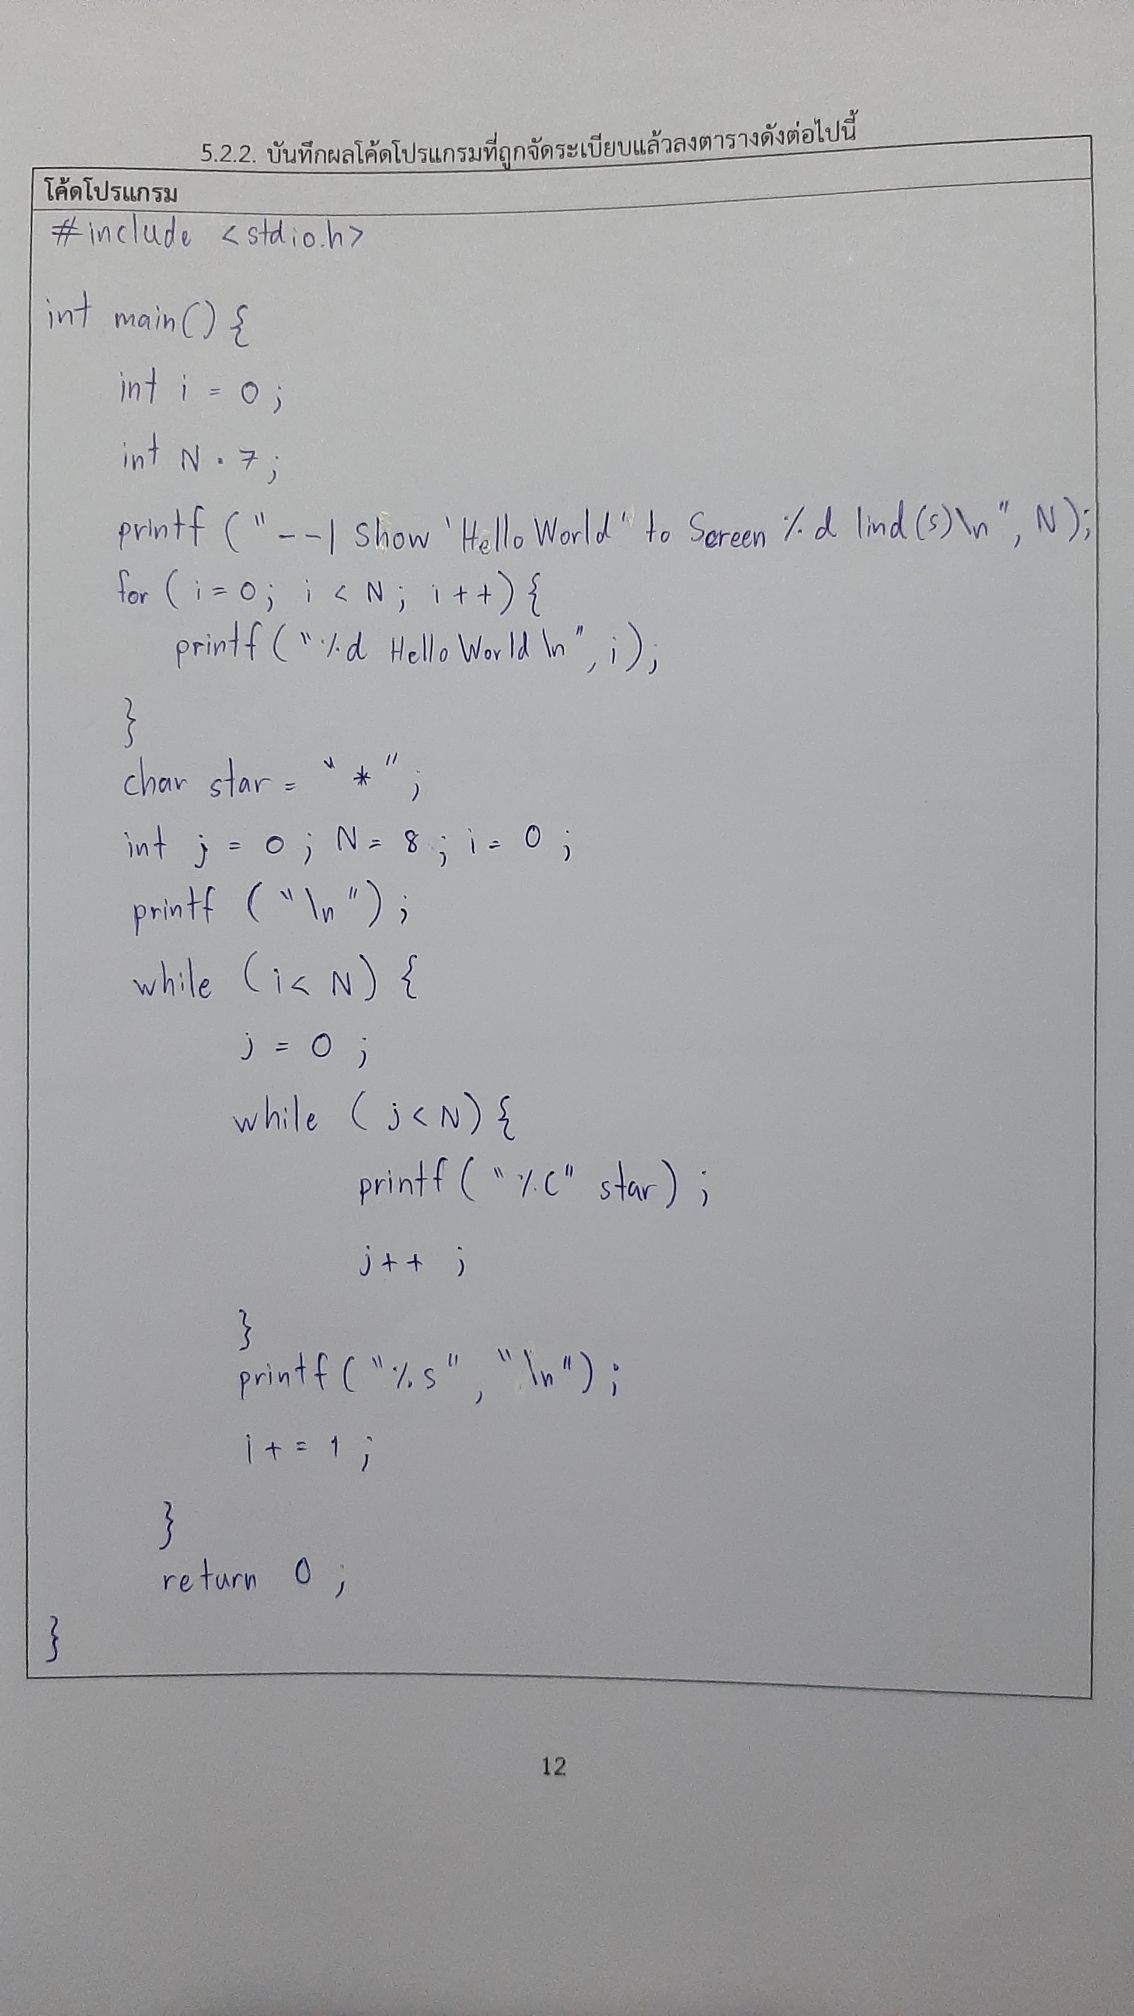 5.2.2. บันทึกผลโค้ดโปรแกรมที่ถูกจัดระเบียบแล้วลงตารางดังต่อไปนี้
โค้ดโปรแกรม
#include <stdio.h>
int main() {
int i = 0 ;
int N = 7 ;
printf ("--| Show 'Hello World' to Screen %d lind(s)\n", N);
for ( i = 0; i < N ; i ++) {
printf ("%d Hello World \n", i);
}
char star = "*" ;
int j = 0 ; N = 8 ; i = 0 ;
printf ("\n") ;
while (i < N) {
j = 0 ;
while ( j < N) {
printf ("%c" star) ;
j++ ;
}
printf ("%s", "\n") ;
i += 1 ;
}
return 0 ;
}
12